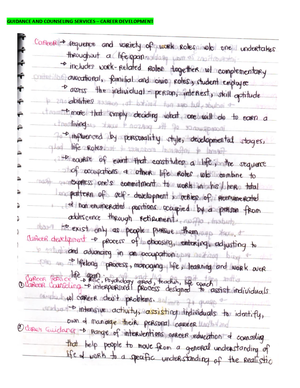 GUIDANCE AND COUNSELING SERVICES – CAREER DEVELOPMENT
Career → sequence and variety of work roles w/c one undertakes
throughout a lifespan
→ includes work-related roles together w/ complementary
avocational, familial and civic roles, student employee
→ assess the individual - person, interest, skill aptitude
abilities
→ more than simply deciding what one will do to earn a
living
→ influenced by personality style, developmental stages,
life roles
→ course of event that constitutes a life, the sequence
of occupations & other life roles w/c combine to
express one's commitment to work in his/her total
pattern of self-development & series of remunerated
& non enumerated positions occupied by a person from
adolescence through retirement
→ exist only as people pursue them
Career development → process of choosing, entering, adjusting to
and advancing in an occupation
→ lifelong process, managing life, learning and work over
life span
Career Service
① Career Counseling → interpersonal process designed to assist individuals
w/ career dev't problems
→ intensive activity, assisting individuals to identify,
own & manage their personal career
② Career Guidance → range of interventions career education & counseling
that help people to move from a general understanding of
life & work to a specific understanding of the realistic